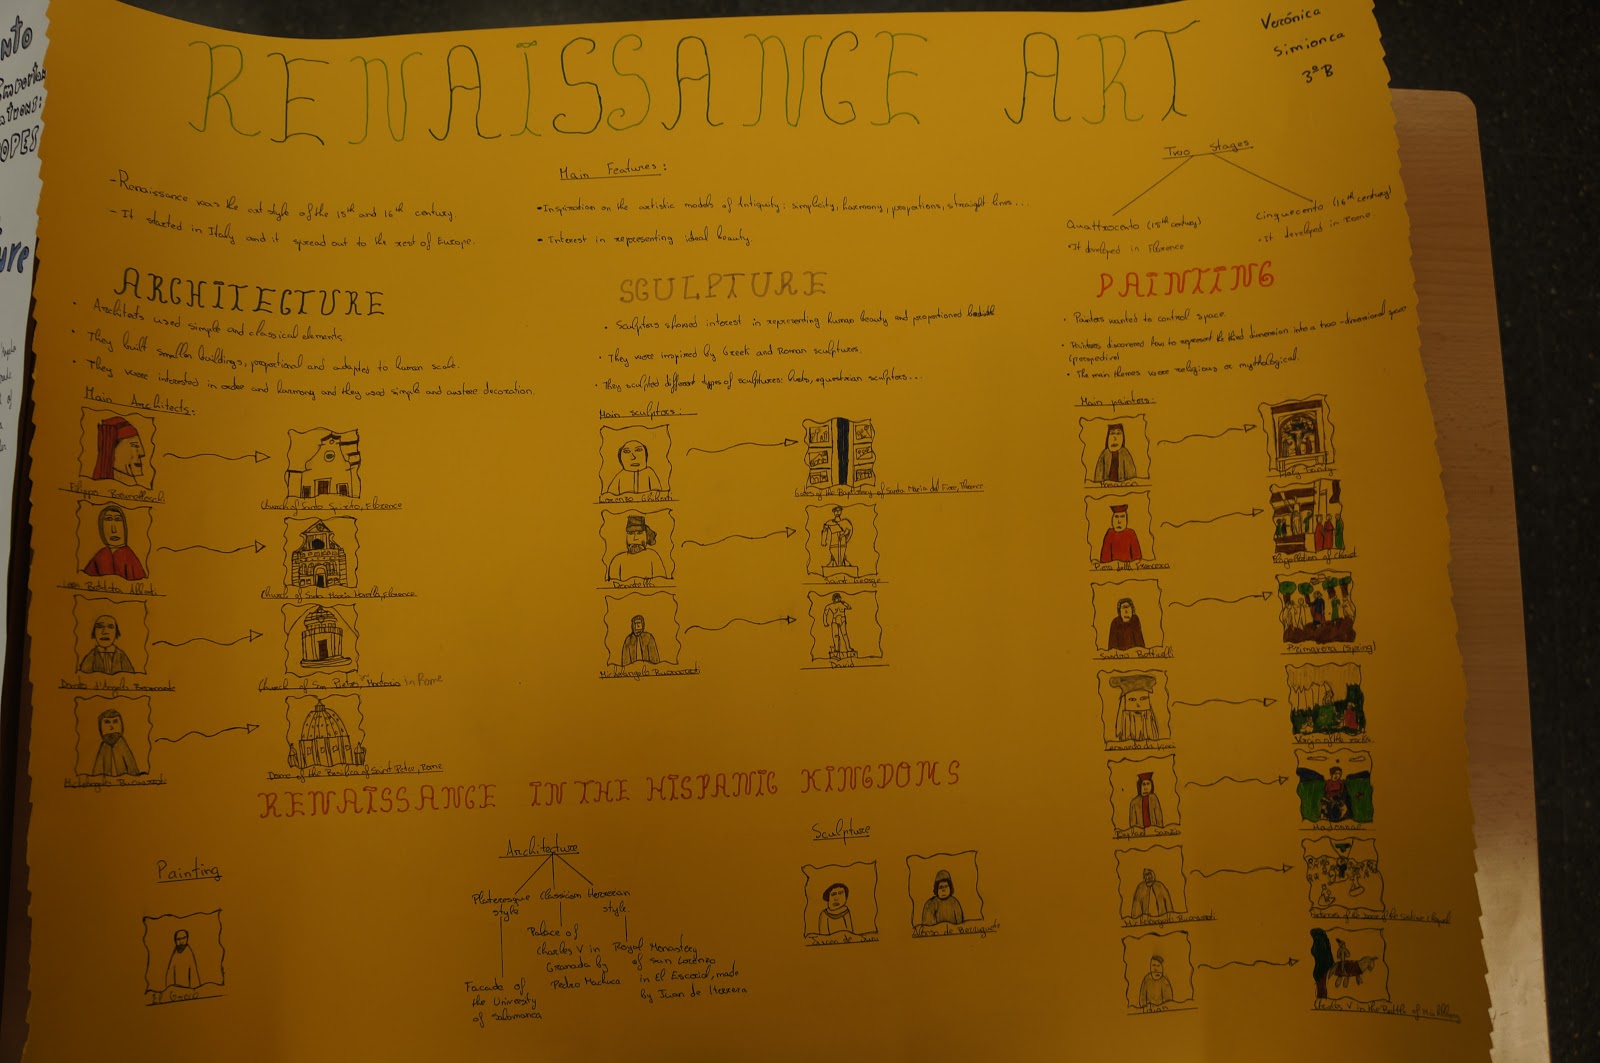 RENAISSANCE ART
Verónica
Simionca
3ºB
- Renaissance was the art style of the 15th and 16th century.
- It started in Italy and it spread out to the rest of Europe.
Main Features:
- Inspiration on the artistic models of Antiquity: simplicity, harmony, proportions, straight lines...
- Interest in representing ideal beauty.
Two Stages
Quattrocento (15th century)
- It developed in Florence
Cinquecento (16th century)
- It developed in Rome
ARCHITECTURE
· Architects used simple and classical elements.
· They built smaller buildings, proportional and adapted to human scale.
· They were interested in order and harmony and they used simple and austere decoration.
Main Architects:
Filippo Brunelleschi
Church of Santo Spirito, Florence
Leon Battista Alberti
Church of Santa Maria Novella, Florence
Donato d'Angelo Bramante
Church of San Pietro, Montorio in Rome
Michelangelo Buonarroti
Dome of the Basilica of Saint Peter, Rome
SCULPTURE
· Sculptors showed interest in representing human beauty and proportioned
· They were inspired by Greek and Roman sculptures.
· They sculpted different types of sculptures: busts, equestrian sculptors...
Main sculptors:
Lorenzo Ghiberti
Gates of the Baptistery of Santa Maria del Fiore, Florence
Donatello
Saint George
Michelangelo Buonarroti
David
PAINTING
· Painters wanted to control space.
· Painters discovered how to represent the third dimension into a two-dimensional space
(perspective)
· The main themes were religious or mythological.
Main painters:
Masaccio
Holy Trinity
Piero della Francesca
Flagellation of Christ
Sandro Botticelli
Primavera (Spring)
Leonardo da Vinci
Virgin of the rocks
Raphael Sanzio
Michelangelo Buonarroti
of the Sistine Chapel
Titian
Charles V in the Battle of
RENAISSANCE IN THE HISPANIC KINGDOMS
Painting
El Greco
Architecture
Plateresque
style
Facade of
the University
of Salamanca
Classicism
Palace of
Charles V in
Granada by
Pedro Machuca
Herreran
style
Royal Monastery
of San Lorenzo
in El Escorial, made
by Juan de Herrera
Sculpture
Juan de Juni
Alonso de Berruguete